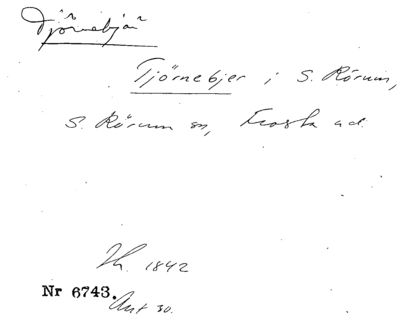 Tjörnebjär
Tjörnebjer i S. Rörum,
S. Rörum sn, Frosta hd.
Th. 1842
Nr 6743.
Ant 30.